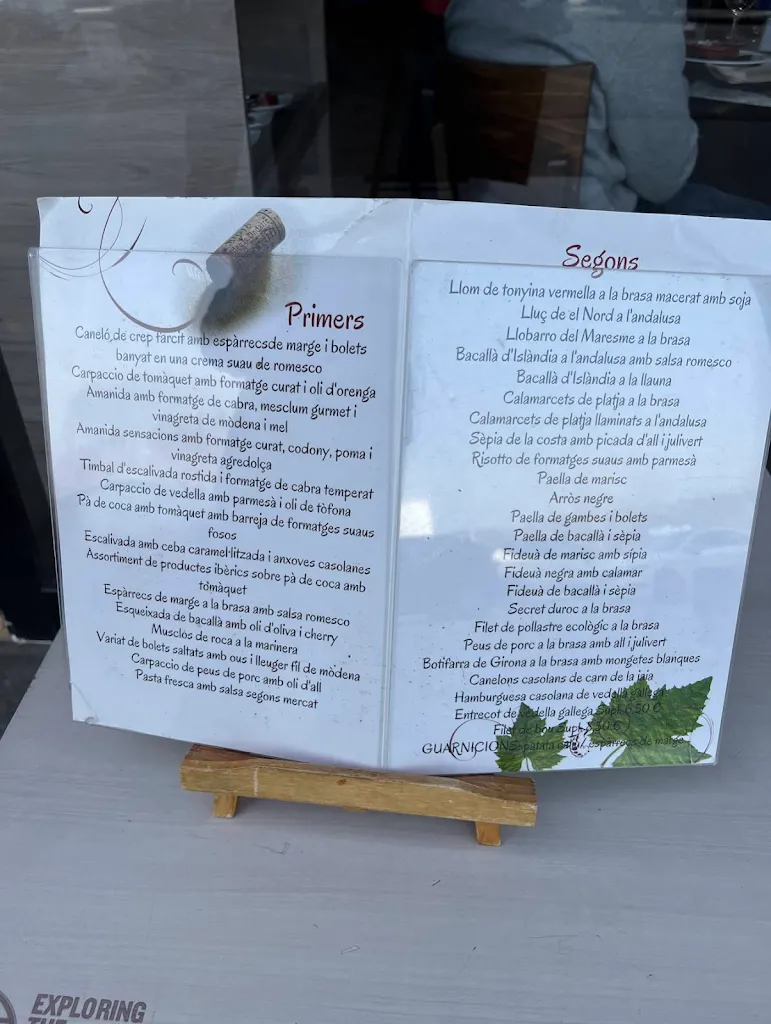 Primers
Caneló,de crep farcit amb espàrrecsde marge i bolets
banyat en una crema suau de romesco
Carpaccio de tomàquet amb formatge curat i oli d'orenga
Amanida amb formatge de cabra, mesclum gurmet i
vinagreta de mòdena i mel
Amanida sensacions amb formatge curat, codony, poma i
vinagreta agredolça
Timbal d'escalivada rostida i formatge de cabra temperat
Carpaccio de vedella amb parmesà i oli de tòfona
Pà de coca amb tomàquet amb barreja de formatges suaus
fosos
Escalivada amb ceba caramel·litzada i anxoves casolanes
Assortiment de productes ibèrics sobre pà de coca amb
tòmàquet
Espàrrecs de marge a la brasa amb salsa romesco
Esqueixada de bacallà amb oli d'oliva i cherry
Musclos de roca a la marinera
Variat de bolets saltats amb ous i lleuger fil de mòdena
Carpaccio de peus de porc amb oli d'all
Pasta fresca amb salsa segons mercat
Segons
Llom de tonyina vermella a la brasa macerat amb soja
Lluç de el Nord a l'andalusa
Llobarro del Maresme a la brasa
Bacallà d'Islàndia a l'andalusa amb salsa romesco
Bacallà d'Islàndia a la llauna
Calamarcets de platja a la brasa
Calamarcets de platja llaminats a l'andalusa
Sèpia de la costa amb picada d'all i julivert
Risotto de formatges suaus amb parmesà
Paella de marisc
Arròs negre
Paella de gambes i bolets
Paella de bacallà i sèpia
Fideuà de marisc amb sípia
Fideuà negra amb calamar
Fideuà de bacallà i sèpia
Secret duroc a la brasa
Filet de pollastre ecològic a la brasa
Peus de porc a la brasa amb all i julivert
Botifarra de Girona a la brasa amb mongetes blanques
Canelons casolans de carn de la iaia
Hamburguesa casolana de vedella gallega
Entrecot de vedella gallega Supl 6,50 €
Filet de bou Supl 7,50 €
GUARNICIONS: patata espàrrecs de marge
EXPLORING
THE